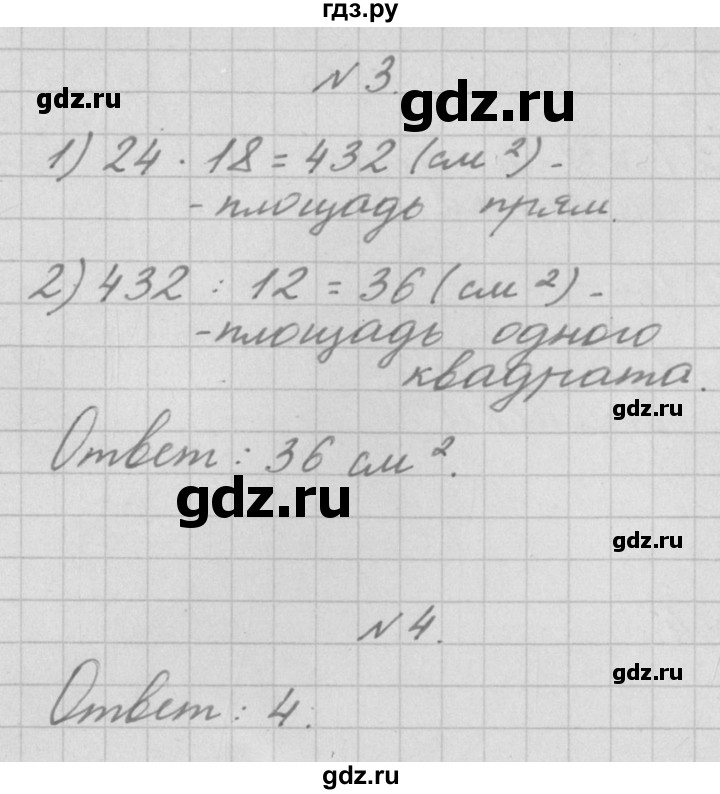 гдз.ру
№ 3.
gdz.ru
gdz.ru
1) 24 · 18 = 432 (см²) -
- площадь прям.
2) 432 : 12 = 36 (см²) -
- площадь одного
квадрата.
gdz.ru
Ответ: 36 см².
gdz.ru
gdz.ru
№ 4.
gdz.ru
Ответ: 4.
gdz.ru